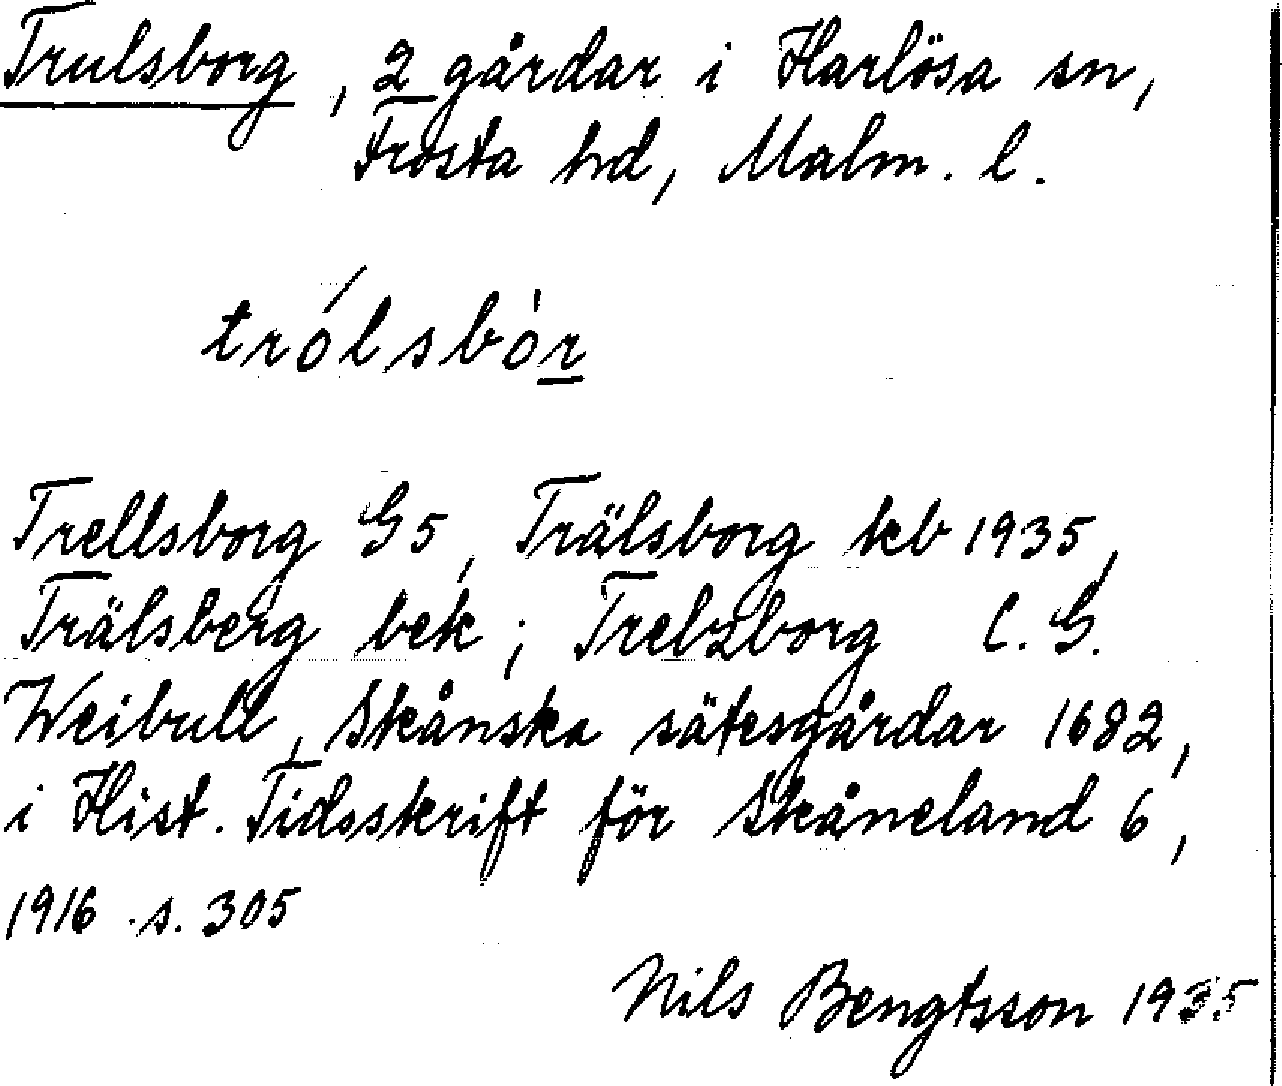 Trulsborg, 2 gårdar i Harlösa sn,
Frosta hd, Malm. l.
trólsbòr
Trellsborg G5, Trälsborg kb 1935,
Trälsberg bek; Trelzborg C. G.
Weibull, Skånska sätesgårdar 1682,
i Hist. Tidsskrift för Skåneland 6,
1916 s. 305
Nils Bengtsson 1935